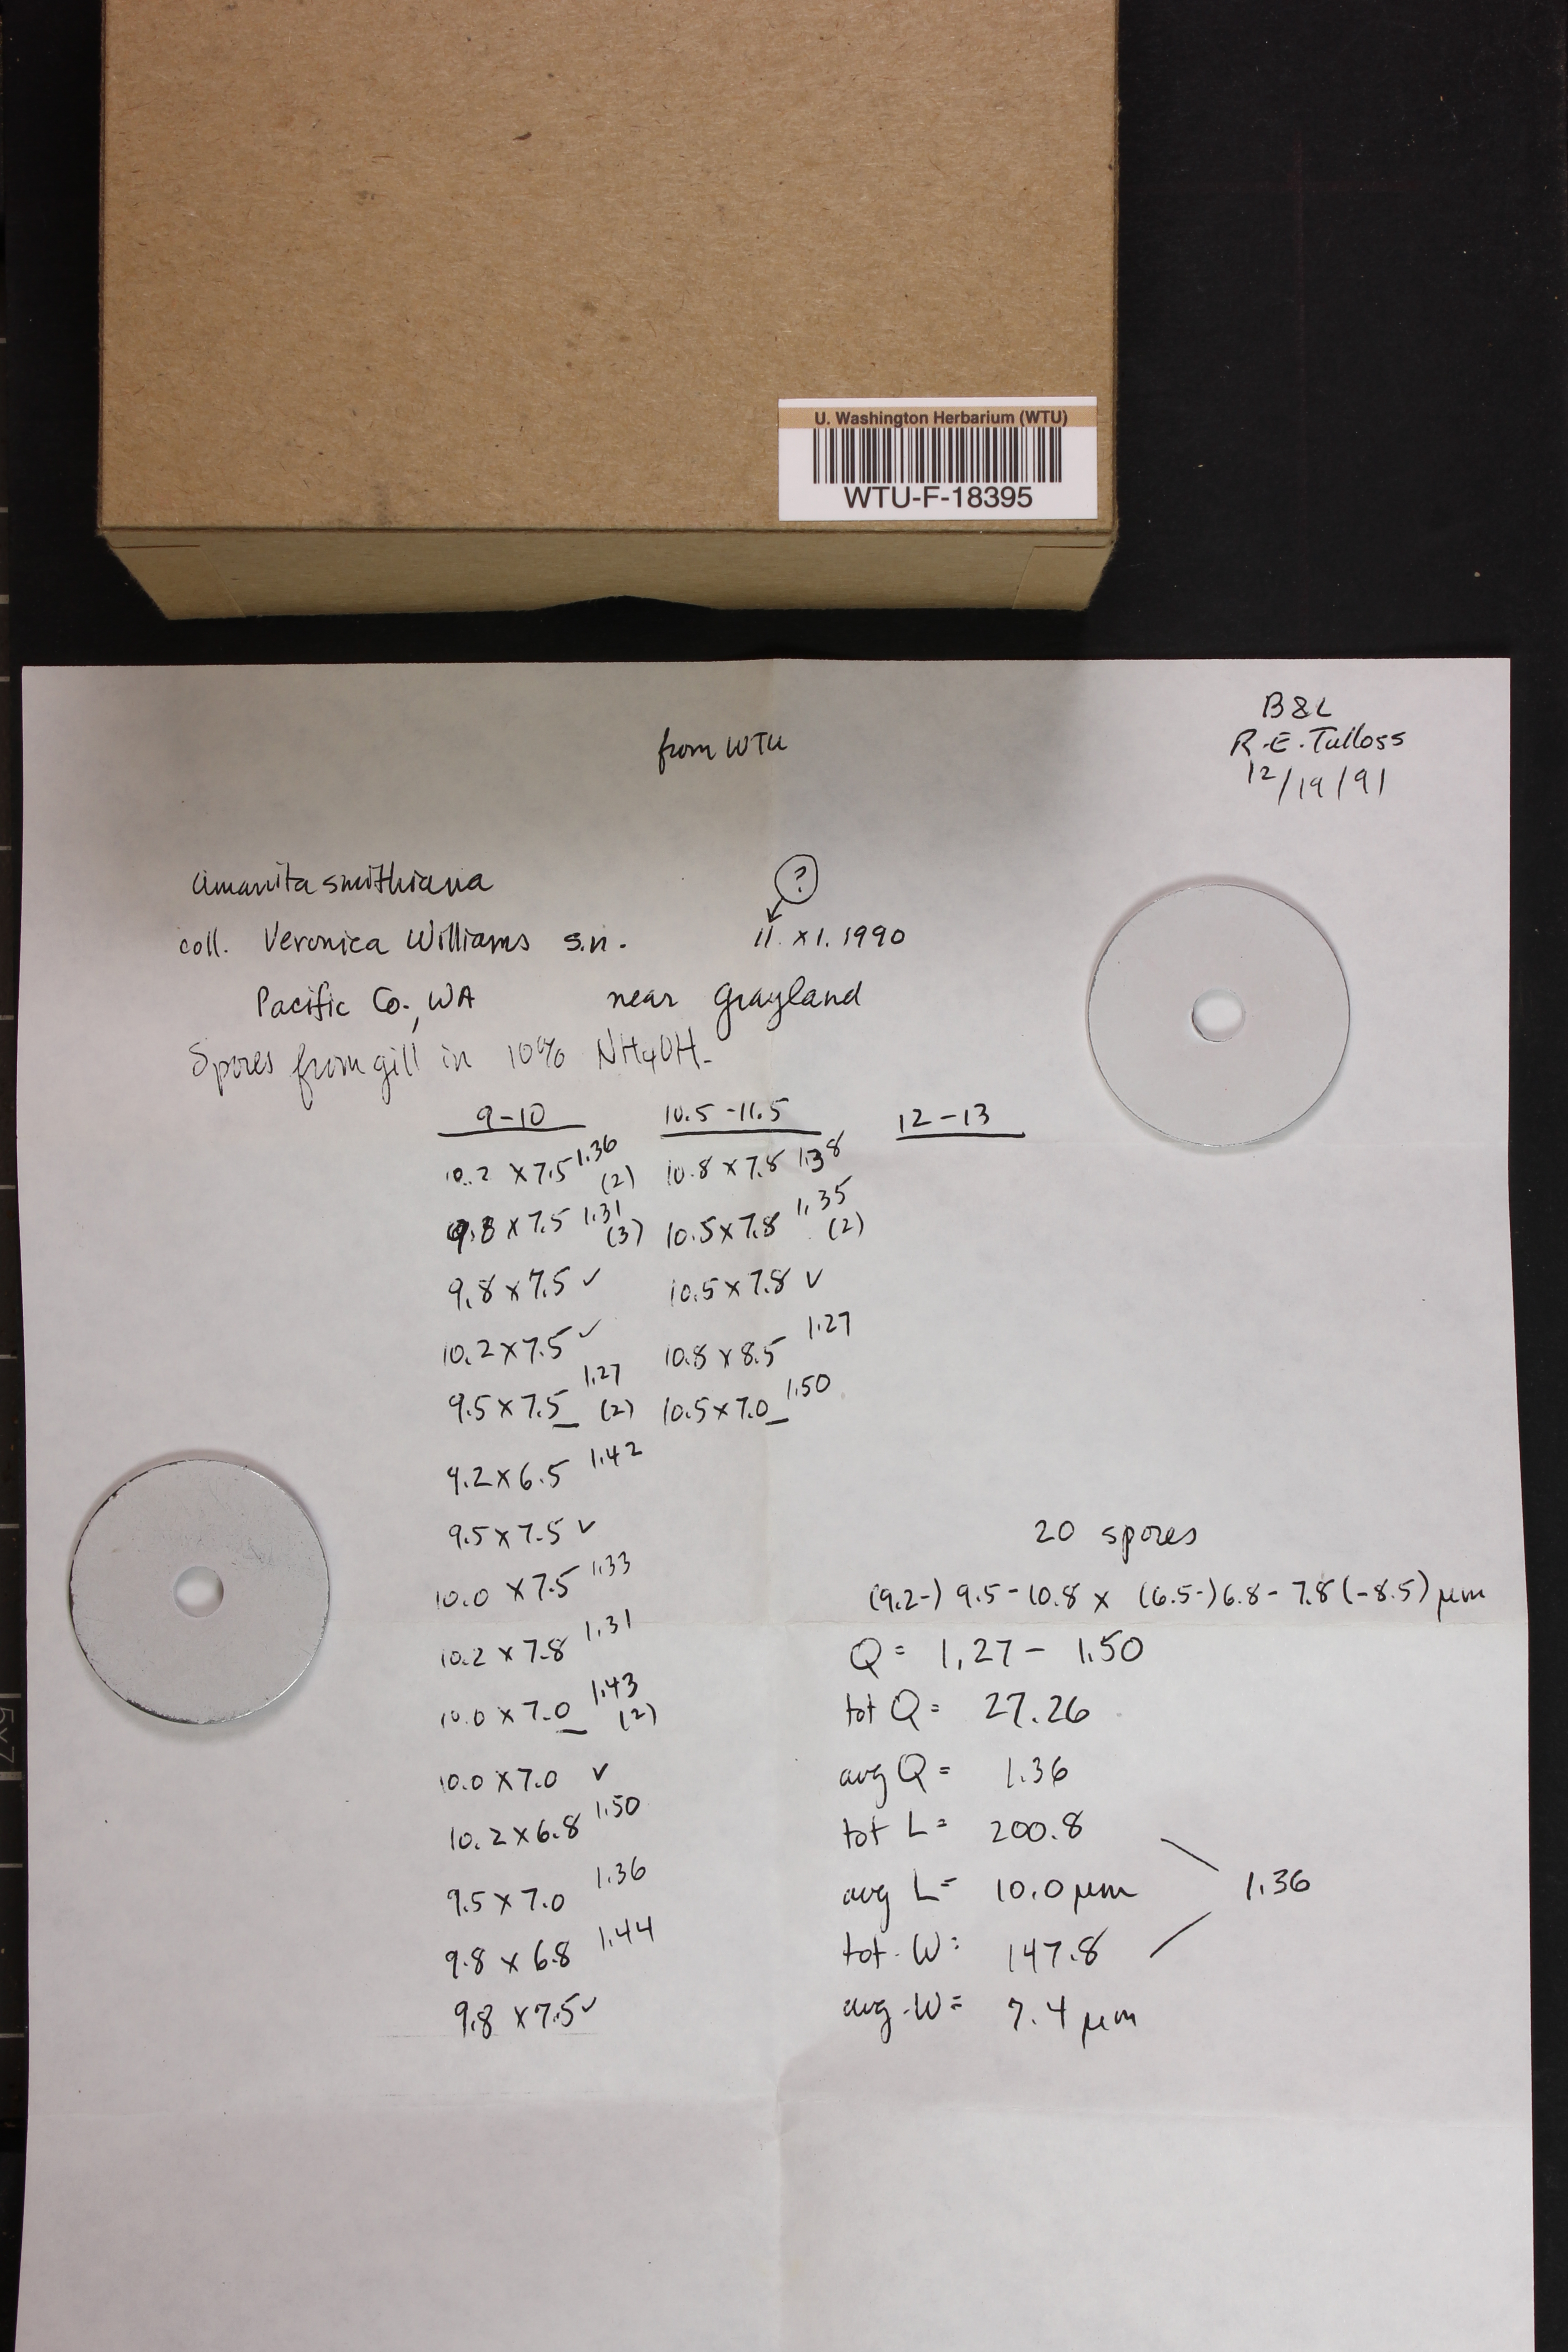 U. Washington Herbarium (WTU)
WTU-F-18395
B & L
from WTU
R.E. Tulloss
12/19/91
Amanita smithiana
?
coll. Veronica Williams s.n. 11. XI. 1990
Pacific Co., WA near Grayland
Spores from gill in 10% NH4OH.
9-10 10.5-11.5 12-13
10.2 x 7.5 1.36 (2) 10.8 x 7.8 1.38
9.8 x 7.5 1.31 (3) 10.5 x 7.8 1.35 (2)
9.8 x 7.5 ✓ 10.5 x 7.8 ✓
10.2 x 7.5 ✓ 10.8 x 8.5 1.27
9.5 x 7.5 1.27 (2) 10.5 x 7.0 1.50
9.2 x 6.5 1.42
9.5 x 7.5 ✓
20 spores
10.0 x 7.5 1.33
(9.2-) 9.5-10.8 x (6.5-) 6.8-7.8 (-8.5) μm
10.2 x 7.8 1.31
Q = 1.27 - 1.50
10.0 x 7.0 1.43 (2)
tot Q = 27.26
10.0 x 7.0 ✓
avg Q = 1.36
10.2 x 6.8 1.50
tot L = 200.8
9.5 x 7.0 1.36
avg L = 10.0 μm 1.36
9.8 x 6.8 1.44
tot. W = 147.8
9.8 x 7.5 ✓
avg. W = 7.4 μm
5x7